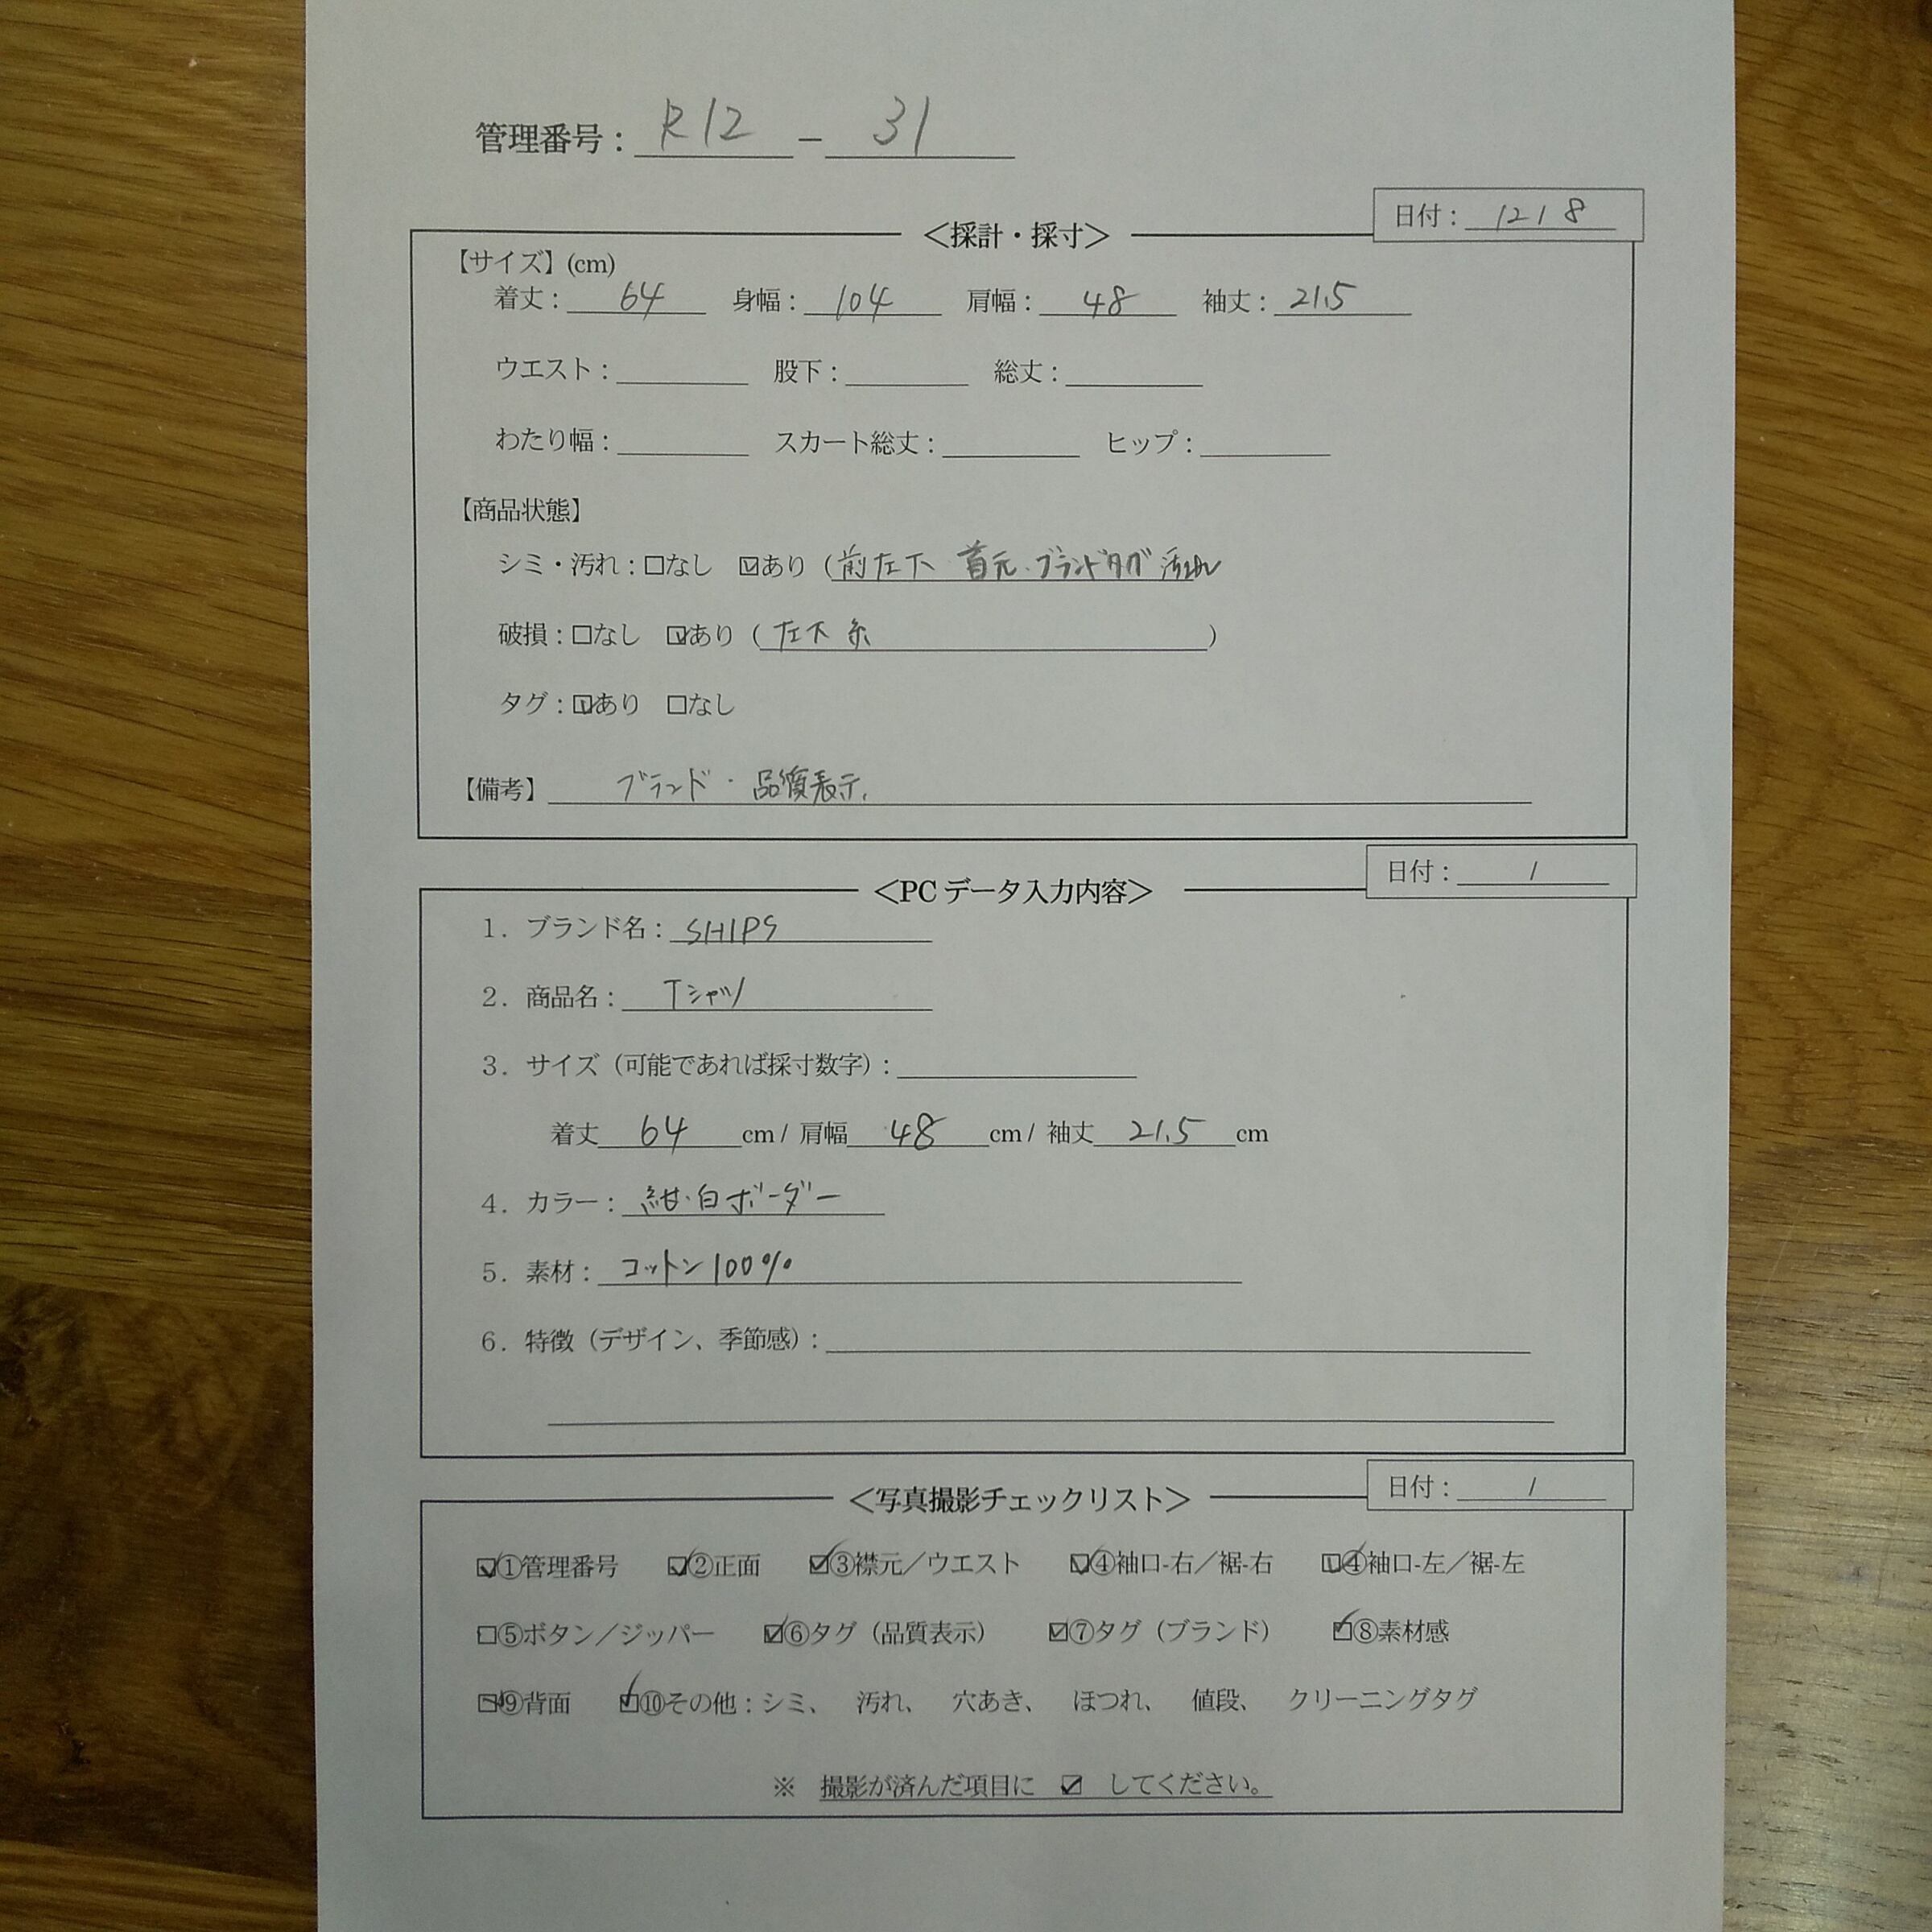 管理番号： R12 － 31
日付： 12/8
＜採計・採寸＞
【サイズ】(cm)
着丈： 64 身幅： 104 肩幅： 48 袖丈： 21.5
ウエスト： 股下： 総丈：
わたり幅： スカート総丈： ヒップ：
【商品状態】
シミ・汚れ：☐なし ☑あり（前左下 首元・ブランドタグ 汚れ
破損：☐なし ☑あり（左下 糸 ）
タグ：☑あり ☐なし
【備考】 ブランド・品質表示.
日付： /
＜PCデータ入力内容＞
1．ブランド名： SHIPS
2．商品名： Tシャツ
3．サイズ（可能であれば採寸数字）：
着丈 64 cm / 肩幅 48 cm / 袖丈 21.5 cm
4．カラー： 紺・白ボーダー
5．素材： コットン100%
6．特徴（デザイン、季節感）：
日付： /
＜写真撮影チェックリスト＞
☑①管理番号 ☑②正面 ☑③襟元／ウエスト ☑④袖口-右／裾-右 ☑④袖口-左／裾-左
☐⑤ボタン／ジッパー ☑⑥タグ（品質表示） ☑⑦タグ（ブランド） ☑⑧素材感
☑⑨背面 ☑⑩その他：シミ、 汚れ、 穴あき、 ほつれ、 値段、 クリーニングタグ
※ 撮影が済んだ項目に ☑ してください。